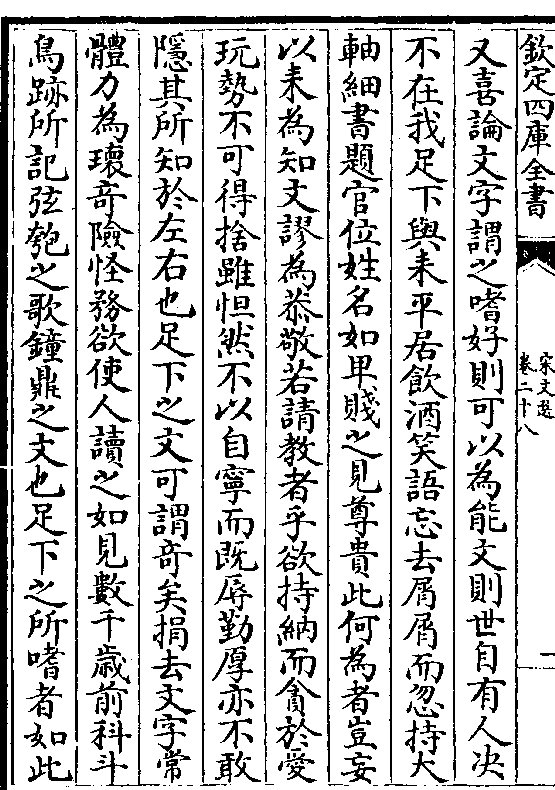 欽定四庫全書
宋文選
卷二十八
一
又喜論文字謂之嗜好則可以為能文則世自有人决
不在我足下與耒平居飲酒笑語忘去屑屑而忽持大
軸細書題官位姓名如卑賤之見尊貴此何為者豈妄
以耒為知文謬為恭敬若請教者乎欲持納而貪於愛
玩勢不可得捨雖怛然不以自寧而既辱勤厚亦不敢
隱其所知於左右也足下之文可謂奇矣捐去文字常
體力為瓌奇險怪務欲使人讀之如見數千歲前科斗
鳥跡所記弦匏之歌鐘鼎之文也足下之所嗜者如此